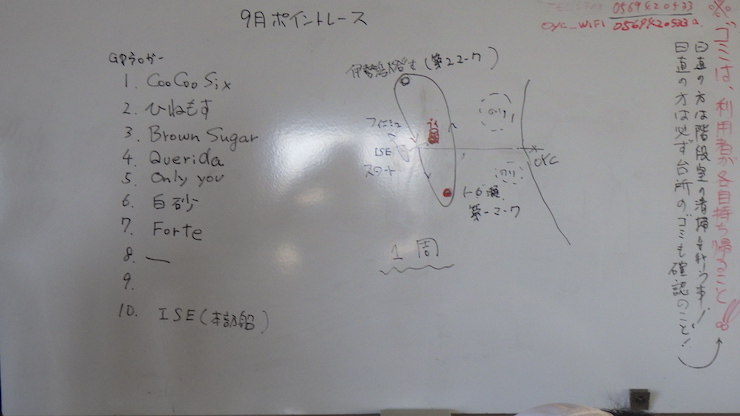 9月ポイントレース
GPSラッガー
1. CooCooSix
2. ひねもす
3. Brown Sugar
4. Querida
5. Only you
6. 白砂
7. Forte
8. —
9.
10. ISE(本部船)
(第2マーク)
フィニッシュ
ISE
スタート
のり
のり
OYC
第一マーク
1周
OYC_WiFi
※ゴミは、利用者が各自持ち帰ること!!
日直の方は階段室の清掃を行う事!
日直の方は必ず台所のゴミも確認のこと!